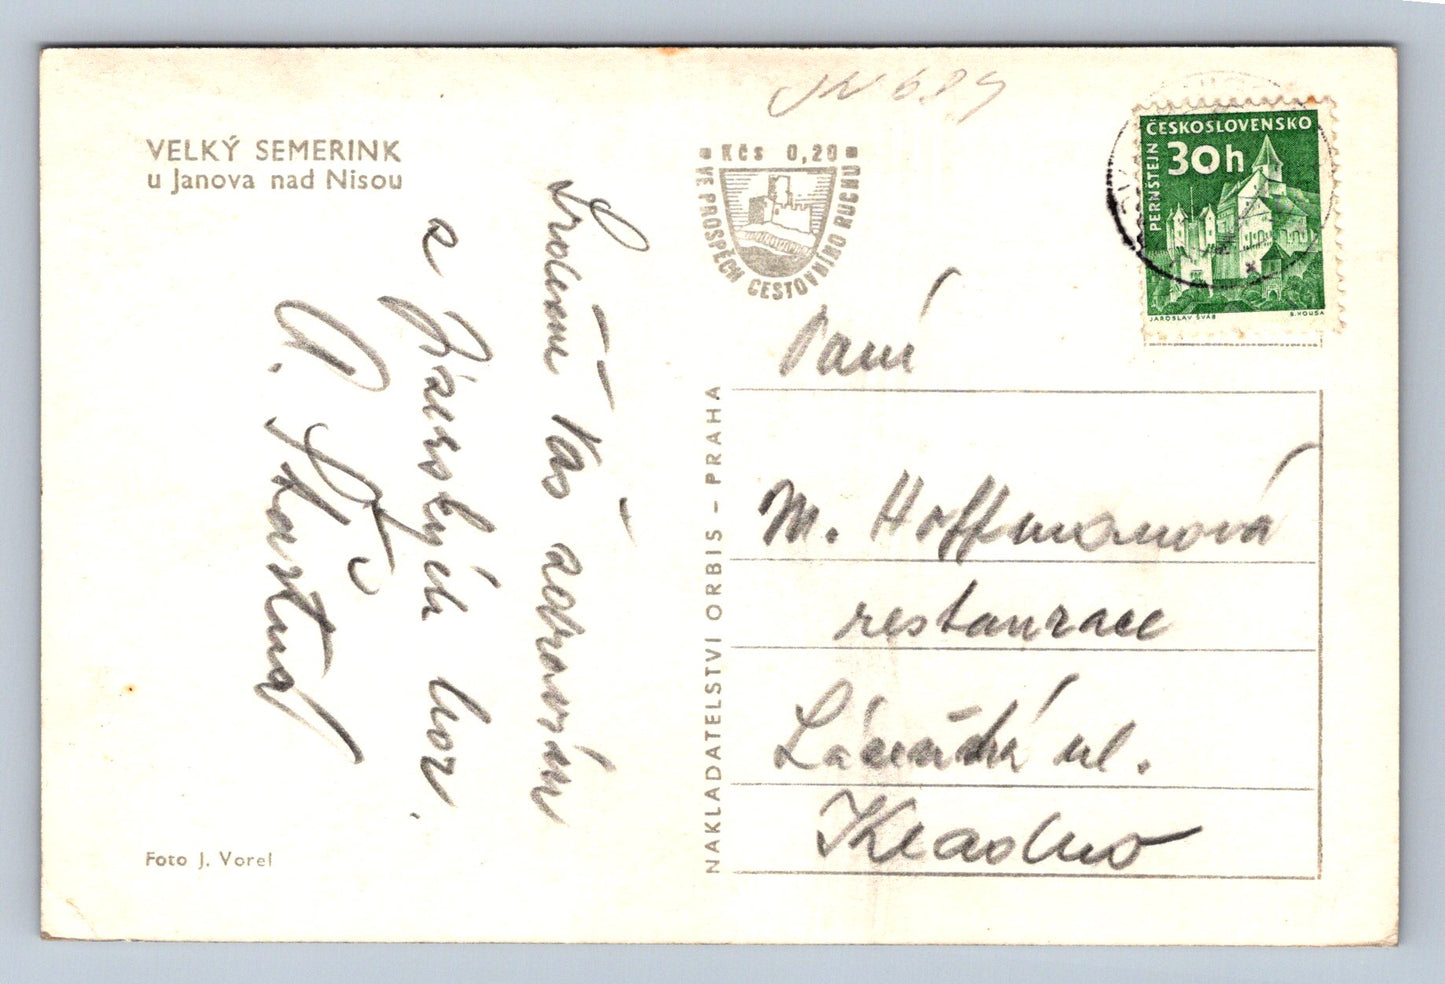 JN 689
VELKÝ SEMERINK
u Janova nad Nisou
Srdečně Vás zdravím
z Jizerských hor.
Foto J. Vorel
Kčs 0,20
VE PROSPĚCH CESTOVNÍHO RUCHU
NAKLADATELSTVÍ ORBIS – PRAHA
ČESKOSLOVENSKO
30h
PERNŠTEJN
JAROSLAV ŠVÁB
B. HOUSA
Paní
M. Hoffmanová
restaurace
ul.
Kladno